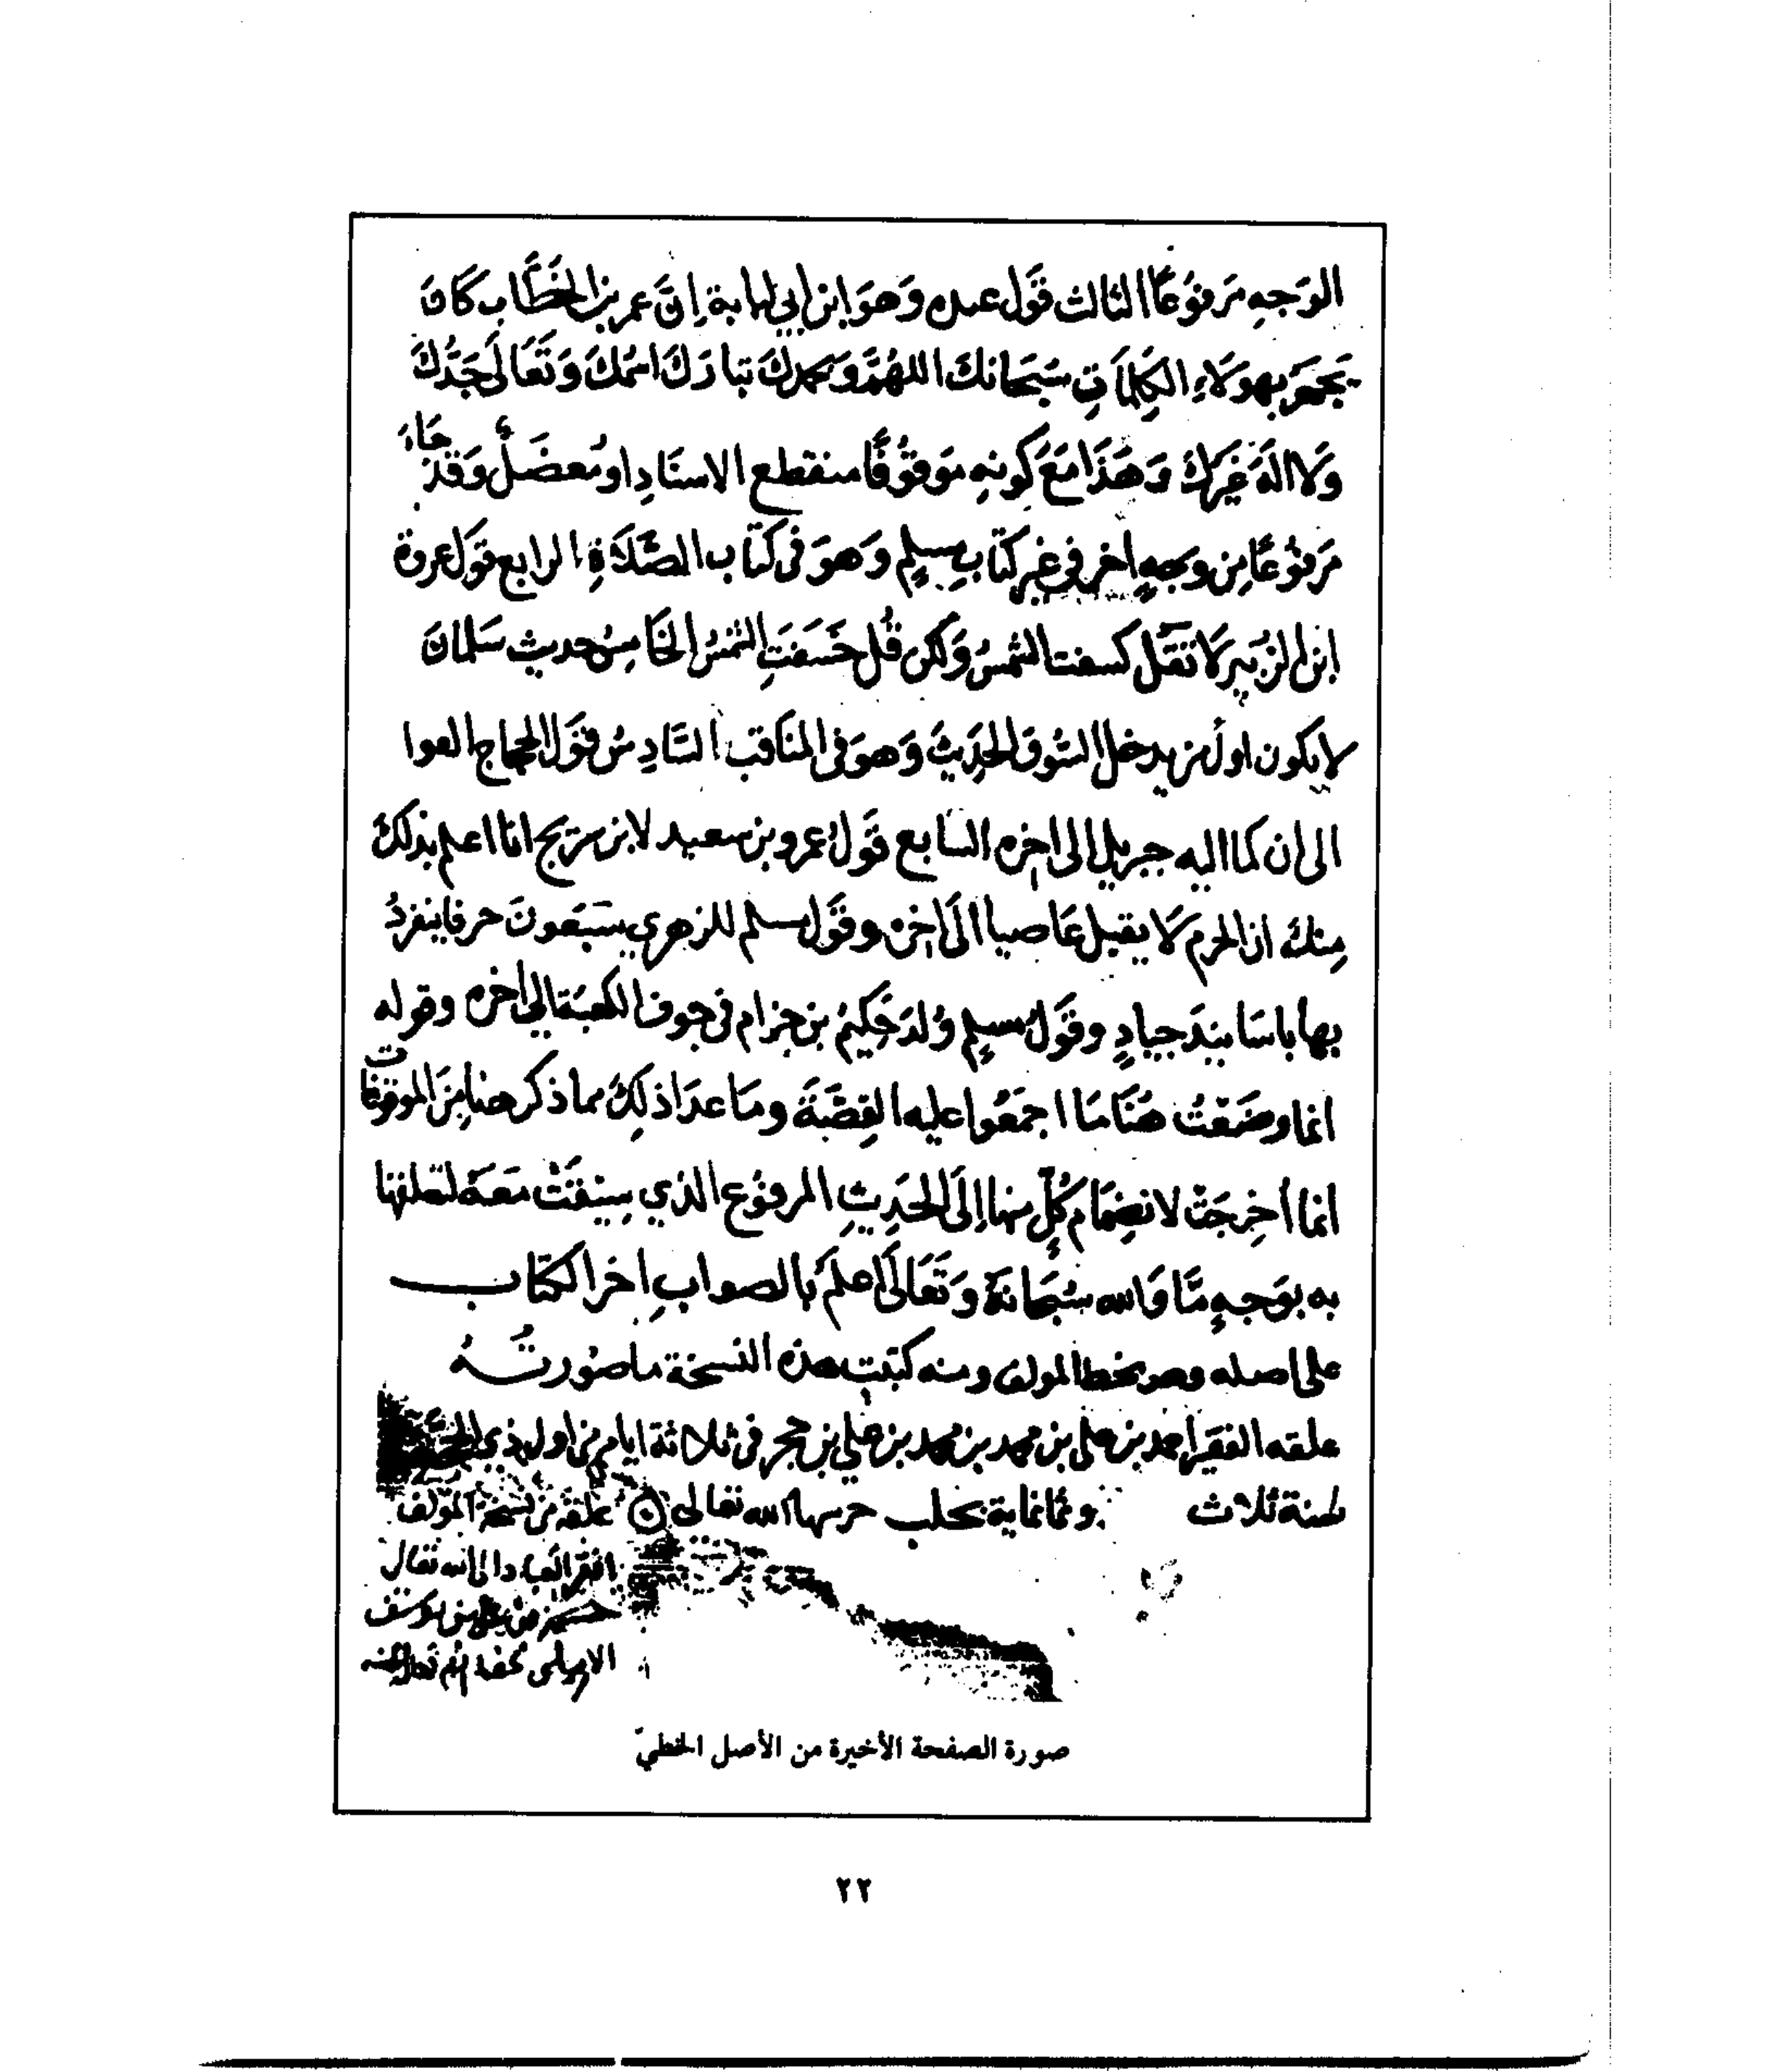 الوَجهِ مَرفوُعًا الثالث قَول عبده وَهوَ ابن ابي لبابة اِنَّ عمر بن الخَطَّابِ كَانَ
يَجهَرُ بهولَاءِ الكَلِمَاتِ سُبحَانك اللهُمَّ وبحمدكَ تبارَكَ اسمُكَ وَتَعَالَى جَدُّكَ
وَلَا اِلَهَ غَيرُكَ وَهَذَا مَعَ كونِهِ مَوقوُفًا منقطع الاسنَادِ او مُعضَل وَقَد جَاءَ
مَرفوُعًا مِن وجهٍ اخر في غير كتَابِ مسلِم وَهوَ في كتَاب الصَّلَاةِ الرابع قَول عروة
ابن الزُبَيرِ لَا تَقُل كسفت الشمسُ وَلكن قُل خَسَفَتِ الشَمسُ الخَامِسُ حديث سَلمانَ
لا يكون اول من يدخل السُوق الحَدِيثَ وَهوَ في المنَاقب السَّادِسُ قَول الحجاج الفوا
القران كما الفه جبريل الى اخِره السَابع قَولُ عمرو بن سعيد لابن شريح انا اعلم بذلكَ
مِنكَ ان الحرم لَا يعيذ عَاصيا الَى اخِره وقَول مسلم للزهري تسعُونَ حرفا ينفَردُ
بها باسَانيدَ جيادٍ وقَولُ مسلِم وُلدَ حَكِيمُ بن حِزام في جوف الكعبَة الي اخره وقوله
انما وضَعتُ هُنَا مَا اجمَعُوا عليه القِصَّةَ ومَا عدَا ذلِكَ مما ذكر هنا مِنَ الموقوفات
انما اُخرِجَت لانضِمَام كُلٍّ منها اِلَى الحَدِيثِ المرفوُع الذي سِيقَت مَعَه لتعلقها
به بوَجهٍ مَّا وَالله سُبحَانَهُ وَتَعَالَى اعلَم بالصوابِ اخر الكتَاب
على اصله وهو بخط المولف ومنه كتبت هذه النسخة ما صُورتُهُ
علقه الفقير احمد بن علي بن محمد بن محمد بن علي بن حجر في ثلاثة ايام من اول ذي الحجة
سنة ثلاث وثمانماية بحلب حرسها الله تعالى علقه من نسخة المولف
افقر العباد الى الله تعالى
بن علي بن يوسف
صورة الصفحة الأخيرة من الأصل الخطيّ
٢٢